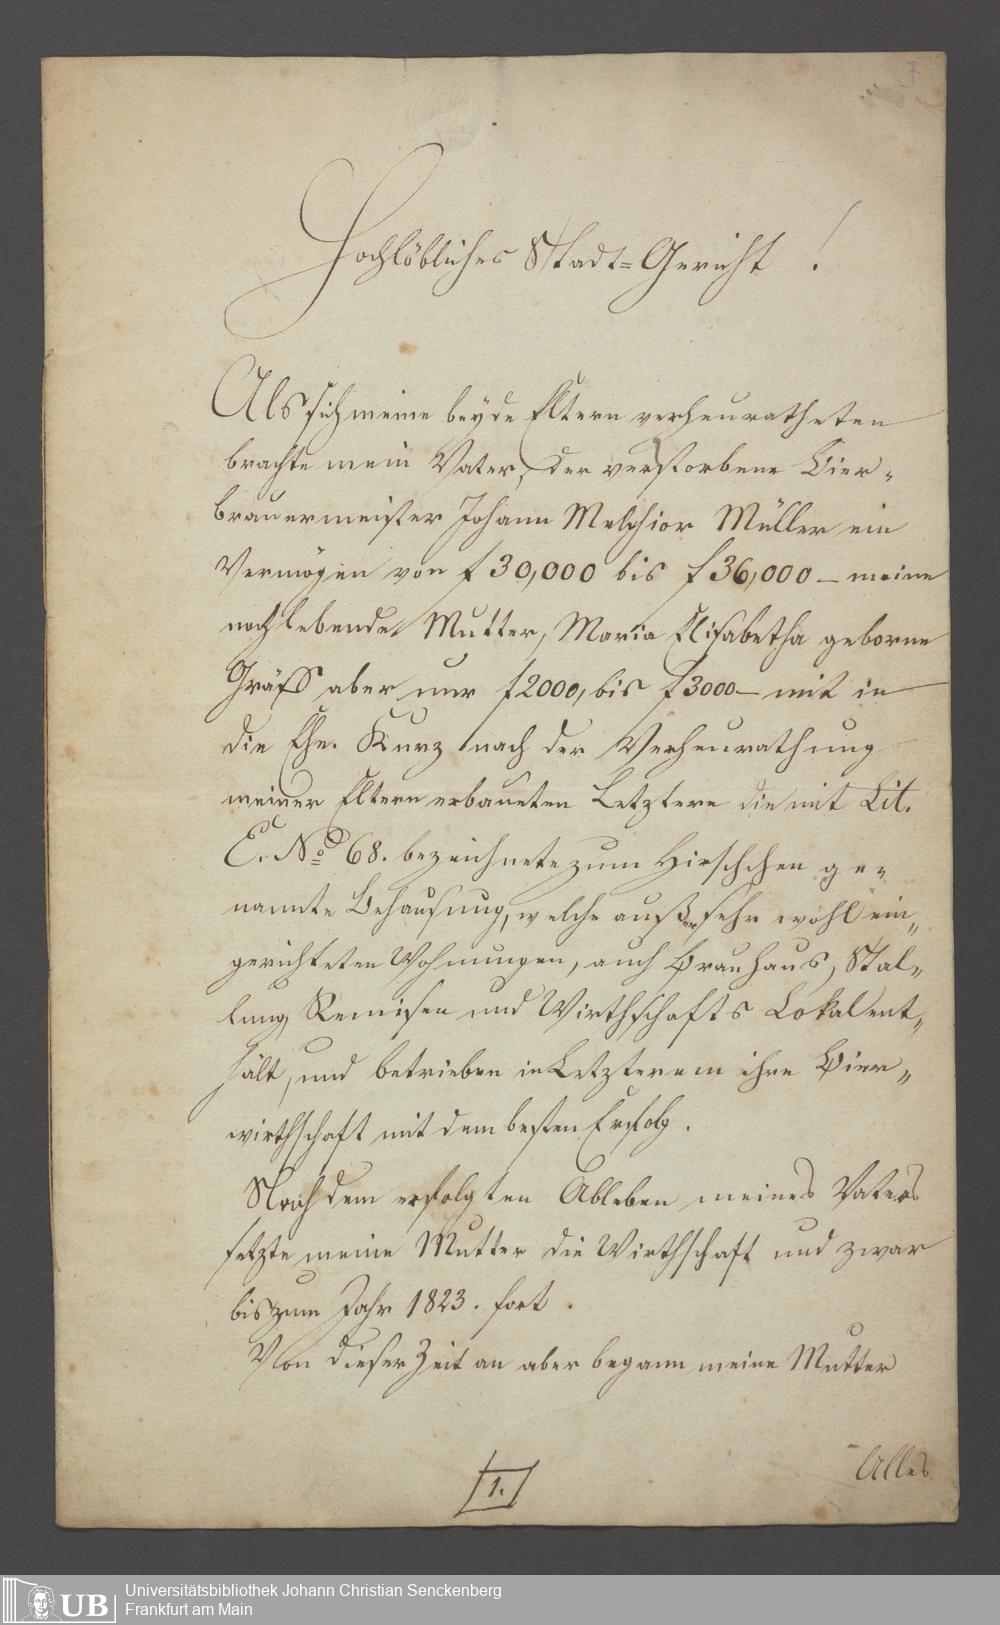 7
Hochlöbliches Stadt=Gericht !
Als sich meine beyde Eltern verheuratheten
brachte mein Vater, der verstorbene Bier-
brauermeister Johann Melchior Müller ein
Vermögen von f 30,000 bis f 36,000 – meine
noch lebende Mutter, Maria Elisabetha geborne
Gräff aber nur f 2000, bis f 3000 – mit in
die Ehe. Kurz nach der Verheurathung
meiner Eltern erbaueten Letztere die mit Lit.
E. No 68. bezeichnete zum Hirschchen ge-
nannte Behausung, welche außer sehr wohl ein-
gerichteten Wohnungen, auch Brauhaus, Stal-
lung, Remisen und Wirthschafts Lokal ent-
hält, und betrieben in Letzterem ihre Bier-
wirthschaft mit dem besten Erfolg.
Nach dem erfolgten Ableben meines Vaters
setzte meine Mutter die Wirthschaft und zwar
bis zum Jahr 1823. fort.
Von dieser Zeit an aber begann meine Mutter
Alles
1.
UB
Universitätsbibliothek Johann Christian Senckenberg
Frankfurt am Main